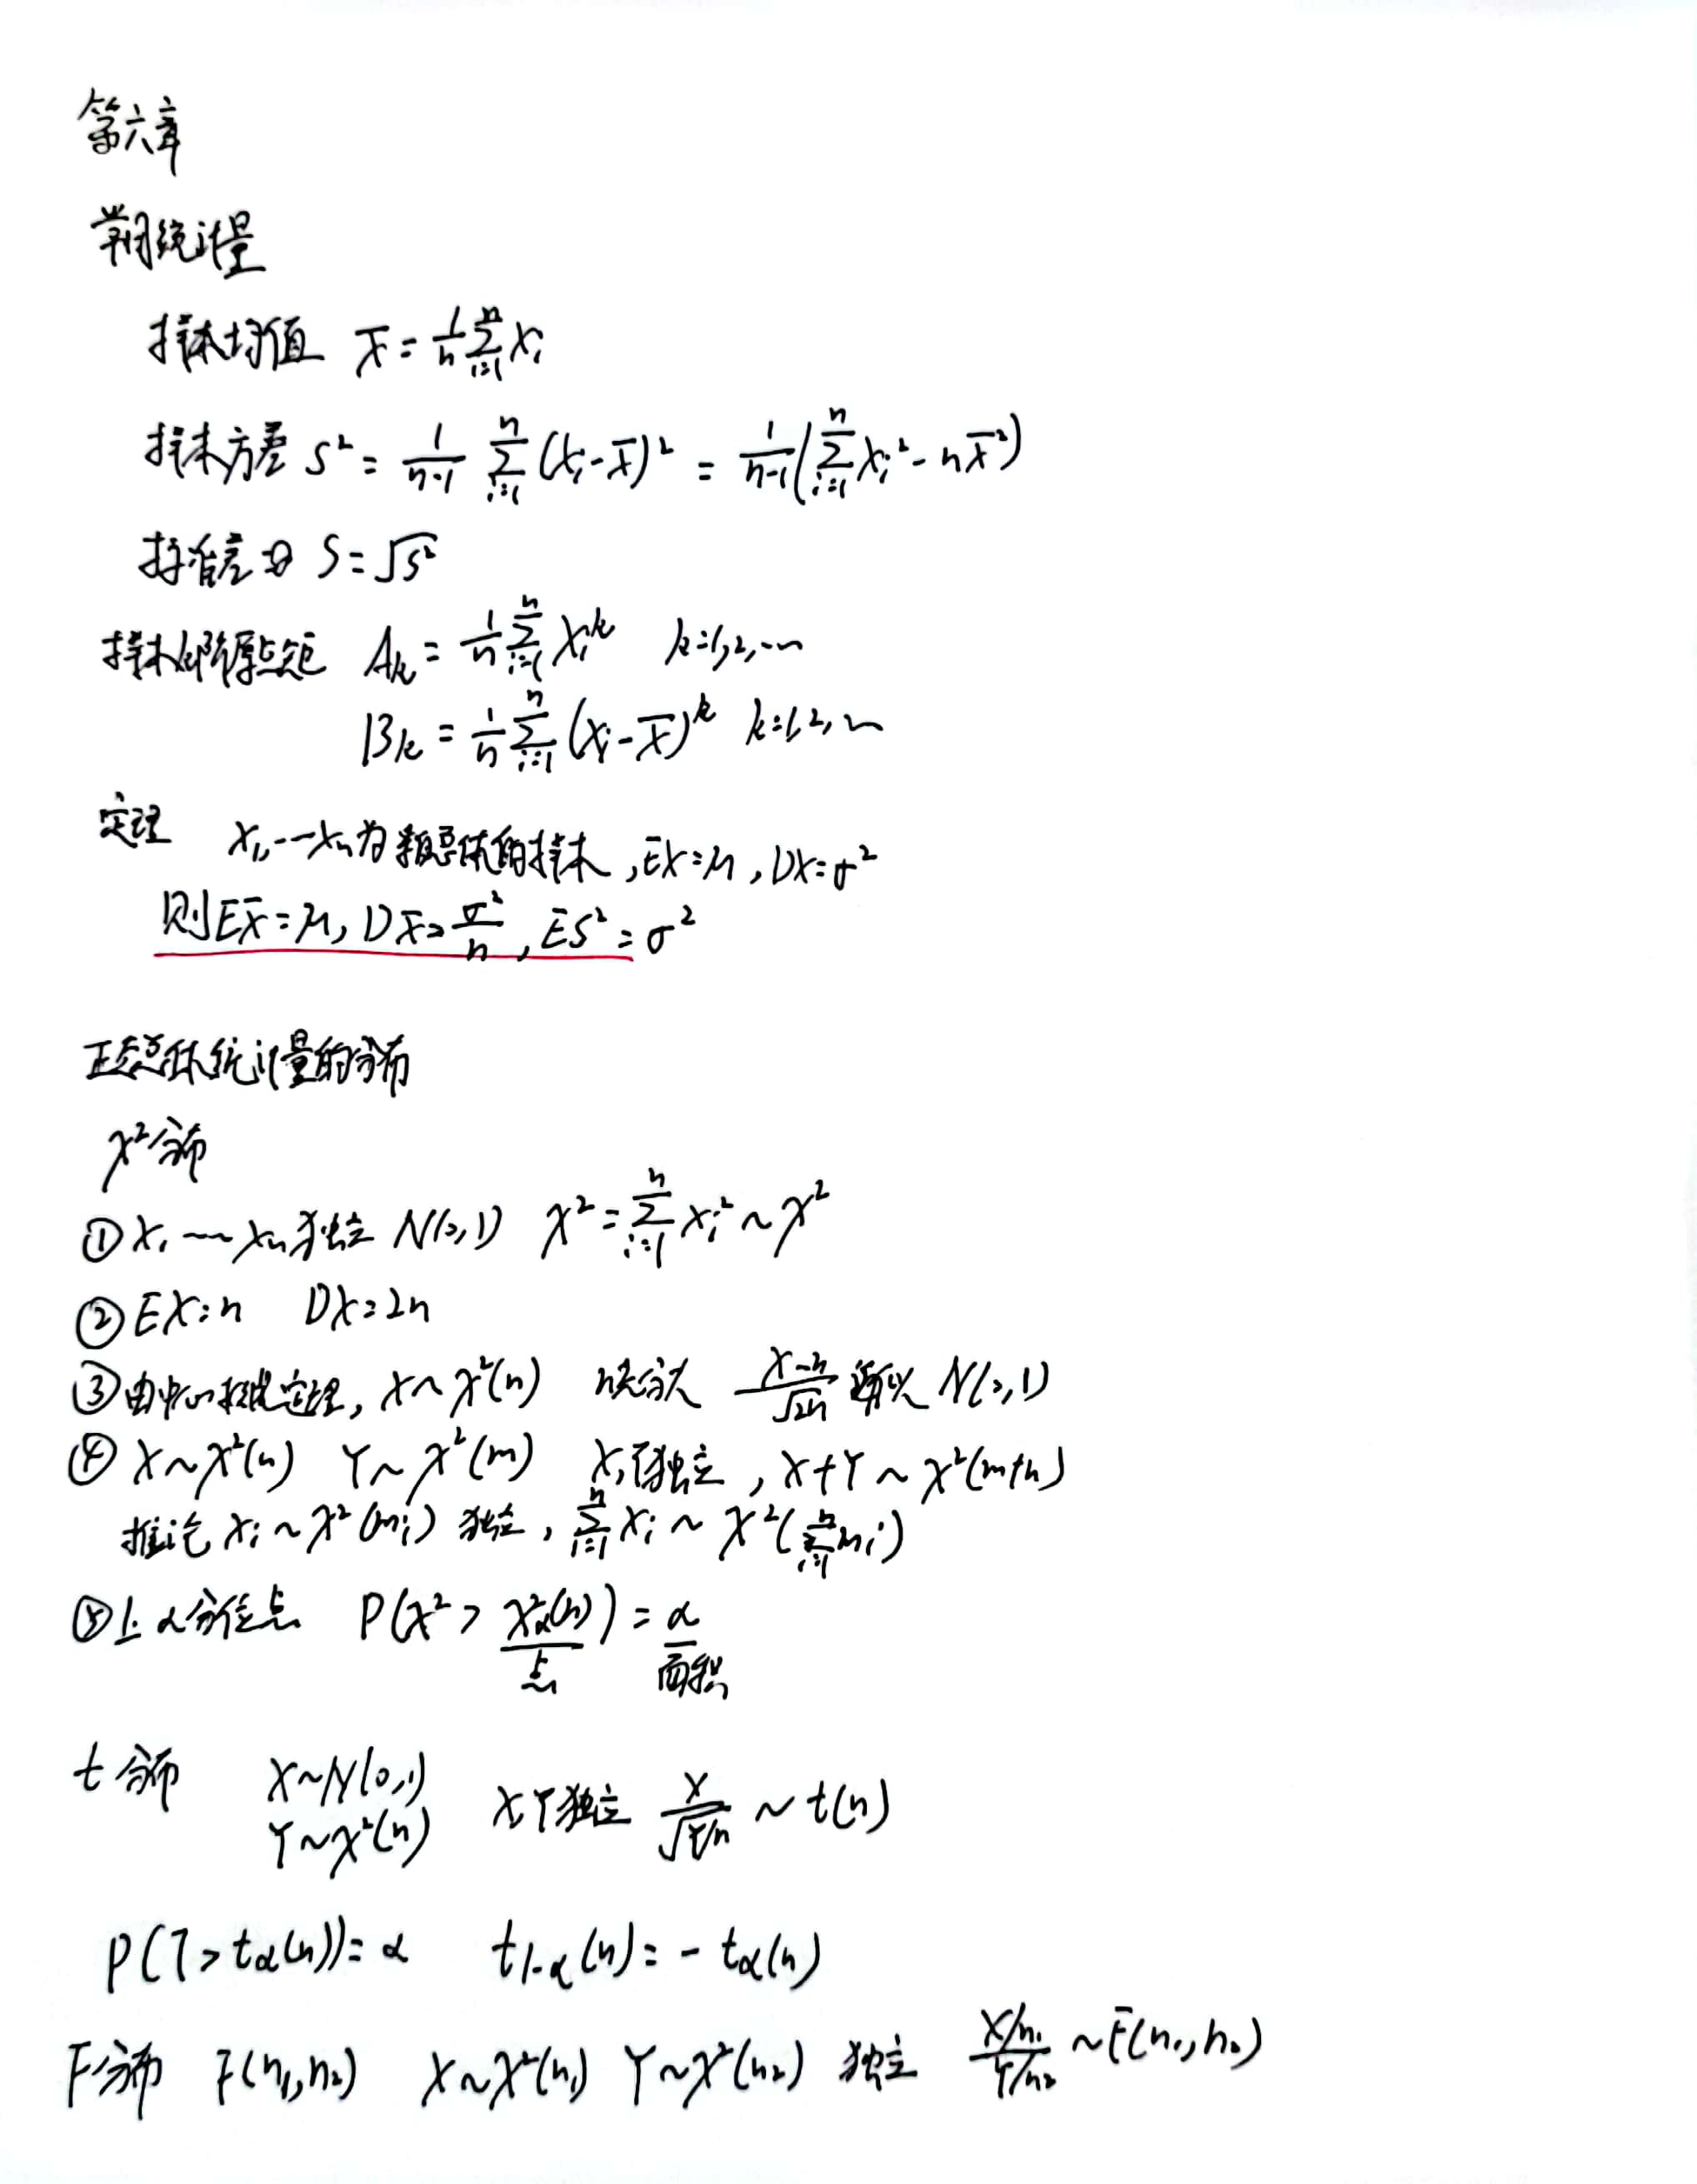 第六章
常用统计量
样本均值 X̄ = 1/n ∑_{i=1}^{n} X_i
样本方差 S² = 1/(n-1) ∑_{i=1}^{n} (X_i - X̄)² = 1/(n-1) (∑_{i=1}^{n} X_i² - nX̄²)
标准差 S = √S²
样本k阶原点矩 A_k = 1/n ∑_{i=1}^{n} X_i^k k=1,2,…
B_k = 1/n ∑_{i=1}^{n} (X_i - X̄)^k k=1,2,…
定理 X_1,…X_n为来自总体的样本,EX=μ,DX=σ²
则EX̄=μ, DX̄=σ²/n, ES²=σ²
正态总体统计量的分布
χ²分布
①X_1…X_n独立 N(0,1) χ² = ∑_{i=1}^{n} X_i² ~ χ²
②EX=n DX=2n
③由中心极限定理, X~χ²(n) n充分大 (X-n)/√2n 近似 N(0,1)
④ X~χ²(n) Y~χ²(m) X,Y独立, X+Y~χ²(m+n)
推论 X_i~χ²(m_i) 独立, ∑_{i=1}^{n} X_i ~ χ²(∑_{i=1}^{n} m_i)
⑤上α分位点 P(χ² > χ²_α(n)) = α
点 面积
t分布 X~N(0,1)
Y~χ²(n) X Y独立 X/√(Y/n) ~ t(n)
P(T>t_α(n))=α t_{1-α}(n)=-t_α(n)
F分布 F(n_1,n_2) X~χ²(n_1) Y~χ²(n_2) 独立 (X/n_1)/(Y/n_2) ~F(n_1,n_2)